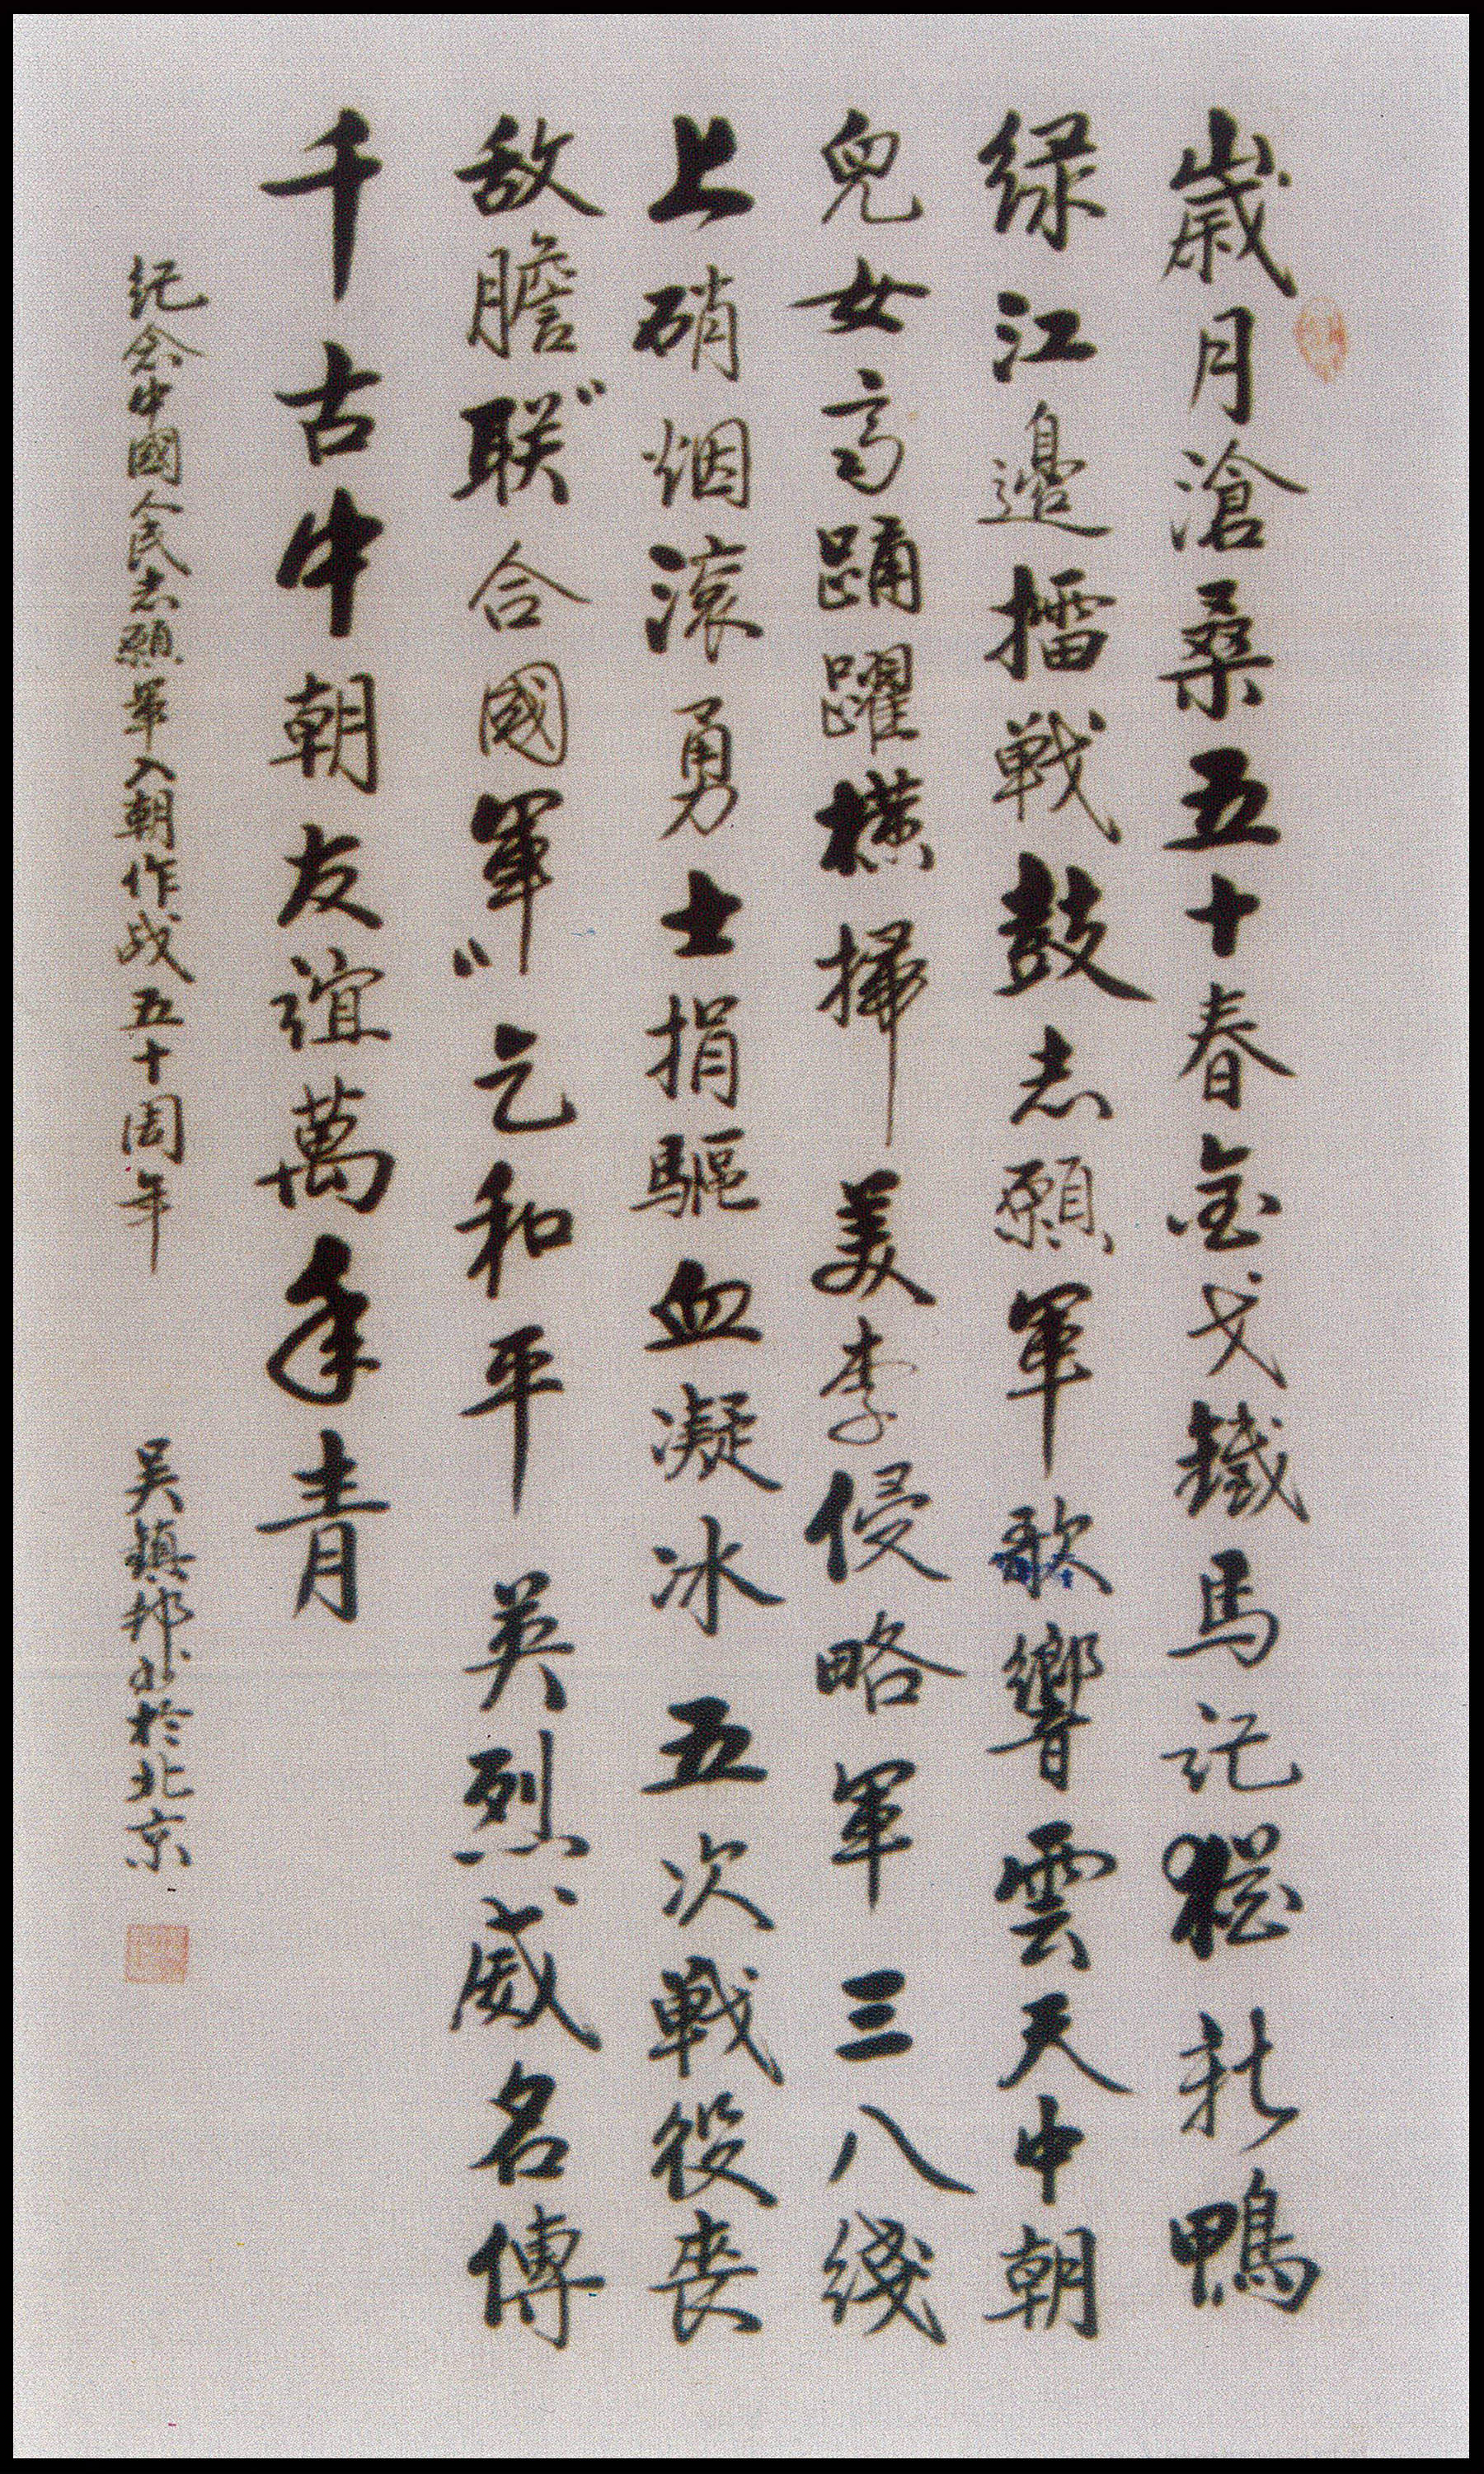 歲月滄桑五十春金戈鐵馬記猶新鴨
绿江邊擂戰鼓志願軍歌響雲天中朝
兒女高踊躍橫掃美李侵略軍三八綫
上硝烟滚勇士捐驅血凝冰五次戰役丧
敌膽“联合國軍”乞和平英烈威名傳
千古中朝友谊萬年青
纪念中國人民志願軍入朝作战五十周年
吴鎮邦於北京